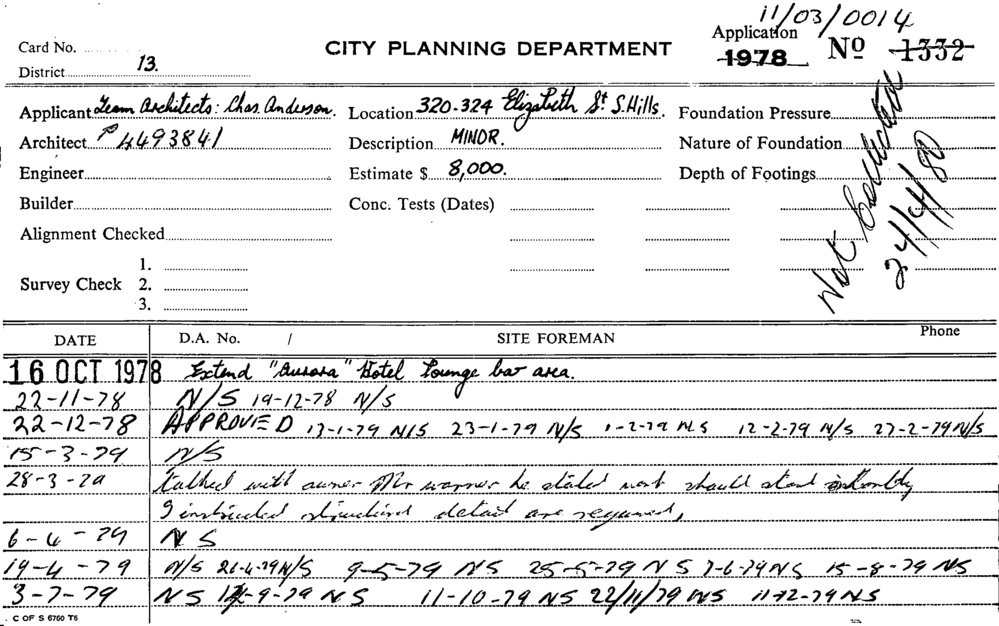 11/03/0014
Card No. CITY PLANNING DEPARTMENT Application 1978 No 1332
District 13.
Applicant Team Architects: Chas. Anderson. Location 320-324 Elizabeth St S. Hills. Foundation Pressure
Architect P 4493841 Description MINOR. Nature of Foundation
Engineer Estimate $ 8,000. Depth of Footings
Builder Conc. Tests (Dates)
Alignment Checked
Not Collected 24/4/80
1.
Survey Check 2.
3.
DATE D.A. No. / SITE FOREMAN Phone
16 OCT 1978 Extend "Aurora" Hotel Lounge bar area.
22-11-78 N/S 19-12-78 N/S
22-12-78 APPROVED 17-1-79 N/S 23-1-79 N/S 1-2-79 N/S 12-2-79 N/S 27-2-79 N/S
15-3-79 N/S
28-3-79 talked with owner Mr warner he stated work should start shortly
I instructed structural detail are required,
6-4-79 N S
19-4-79 N/S 26-4-79 N/S 9-5-79 NS 25-5-79 NS 7-6-79 NS 15-8-79 NS
3-7-79 NS -9-79 NS 11-10-79 NS 22/11/79 NS 11-12-79 NS
C OF S 6760 T6